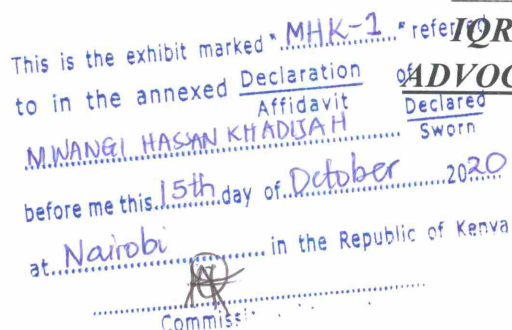 This is the exhibit marked "MHK-1" referred
IQR
to in the annexed Declaration of
ADVOC
Affidavit Declared
MWANGI HASSAN KHADIJAH Sworn
before me this 15th day of October 2020
at Nairobi in the Republic of Kenya
Commissi